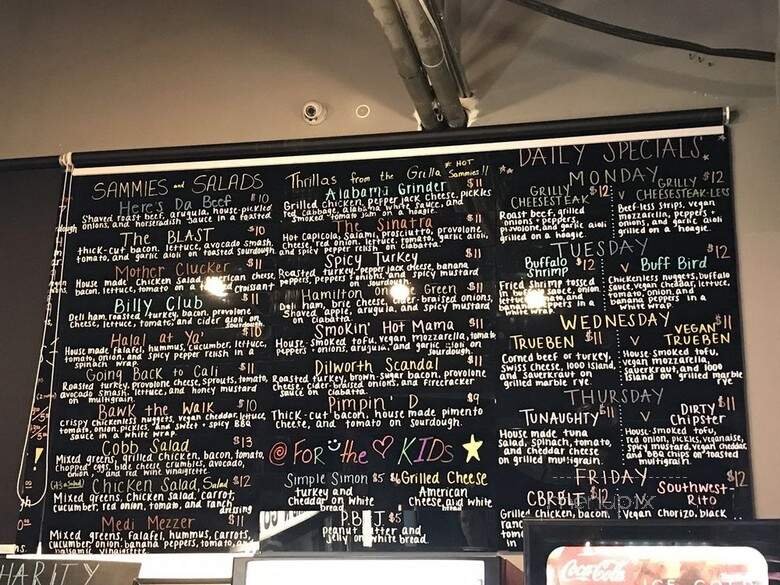 SAMMIES and SALADS
Here's Da Beef $10
Shaved roast beef, arugula, house-pickled
onions, and horseradish sauce in a toasted
The BLAST $10
thick-cut bacon, lettuce, avocado smash,
tomato, and garlic aioli on toasted sourdough.
Mother Clucker $11
House made chicken salad, American cheese,
bacon, lettuce, tomato on a croissant
Billy Club $11
Deli ham, roasted turkey, bacon, provolone
cheese, lettuce, tomato, and cider aioli on
sourdough
Halal at Ya! $10
House made falafel, hummus, cucumber, lettuce,
tomato, onion, and spicy pepper relish in a
spinach wrap
Going Back to Cali $11
Roasted turkey, provolone cheese, sprouts, tomato,
avocado smash, lettuce, and honey mustard
on multigrain.
Bawk the Walk $10
crispy chickenless nuggets, vegan cheddar, lettuce,
tomato, onion, pickles, and sweet + spicy BBQ
sauce in a white wrap.
Cobb Salad $13
Mixed greens, grilled chicken, bacon, tomato,
chopped eggs, blue cheese crumbles, avocado,
onion, and red wine vinaigrette
Chicken Salad Salad $12
Mixed greens, chicken salad, carrot,
cucumber, red onion, tomato, and ranch
dressing
Medi Mezzer $11
Mixed greens, falafel, hummus, carrots,
cucumber, onion, banana peppers, tomato,
balsamic vinaigrette
Thrillas from the Grilla * HOT Sammies!!
Alabama Grinder $11
Grilled chicken, pepper jack cheese, pickles
red cabbage, alabama white sauce, and
smoked tomato jam on a hoagie.
The Sinatra $11
Hot capicola, salami, prosciutto, provolone
cheese, red onion, lettuce, tomato, garlic aioli,
and spicy pepper relish on ciabatta.
Spicy Turkey $11
Roasted turkey, pepper jack cheese, banana
peppers, peppers + onions and spicy mustard
on sourdough.
Hamilton Green $11
Deli ham, brie cheese, cider-braised onions,
shaved apple, arugula, and spicy mustard
on ciabatta.
Smokin' Hot Mama $11
House-smoked tofu, vegan mozzarella, tomato
peppers + onions, arugula, and garlic aioli on
sourdough.
Dilworth Scandal $11
Roasted turkey, brown-sugar bacon, provolone
cheese, cider-braised onions, and firecracker
sauce on ciabatta.
Pimpin' D $9
Thick-cut bacon, house made pimento
cheese, and tomato on sourdough.
@ FOR the KIDS
Simple Simon $5
turkey and
cheddar on white
bread
Grilled Cheese
American
cheese and white
bread
P.B. + J $5
peanut butter and
jelly on white bread.
DAILY SPECIALS
MONDAY
GRILLY CHEESESTEAK $12
Roast beef, grilled
onions + peppers,
provolone, and garlic aioli
on a hoagie.
V GRILLY CHEESESTEAK-LESS $12
Beef-less strips, vegan
mozzarella, peppers +
onions, and garlic aioli
grilled on a hoagie.
TUESDAY
Buffalo Shrimp $12
Fried shrimp tossed
in
V Buff Bird $12
Chickenless nuggets, buffalo
sauce, vegan cheddar, lettuce,
tomato, onion, and
banana peppers in a
white wrap.
WEDNESDAY
TRUEBEN $11
Corned beef or turkey,
swiss cheese, 1000 island,
and sauerkraut on
grilled marble rye.
V VEGAN TRUEBEN $11
House-smoked tofu,
vegan mozzarella,
sauerkraut, and 1000
island on grilled marble
rye
THURSDAY
TUNAUGHTY $11
House made tuna
salad, spinach, tomato,
and cheddar cheese
on grilled multigrain.
V DIRTY Chipster $11
House-smoked tofu,
red onion, pickles, veganaise,
spicy mustard, vegan cheddar
and BBQ chips on toasted
multigrain.
FRIDAY
CBRBLT $12
Grilled chicken, bacon,
V Southwest-Rito $12
Vegan chorizo, black
HARITY
Coca-Cola
menupix